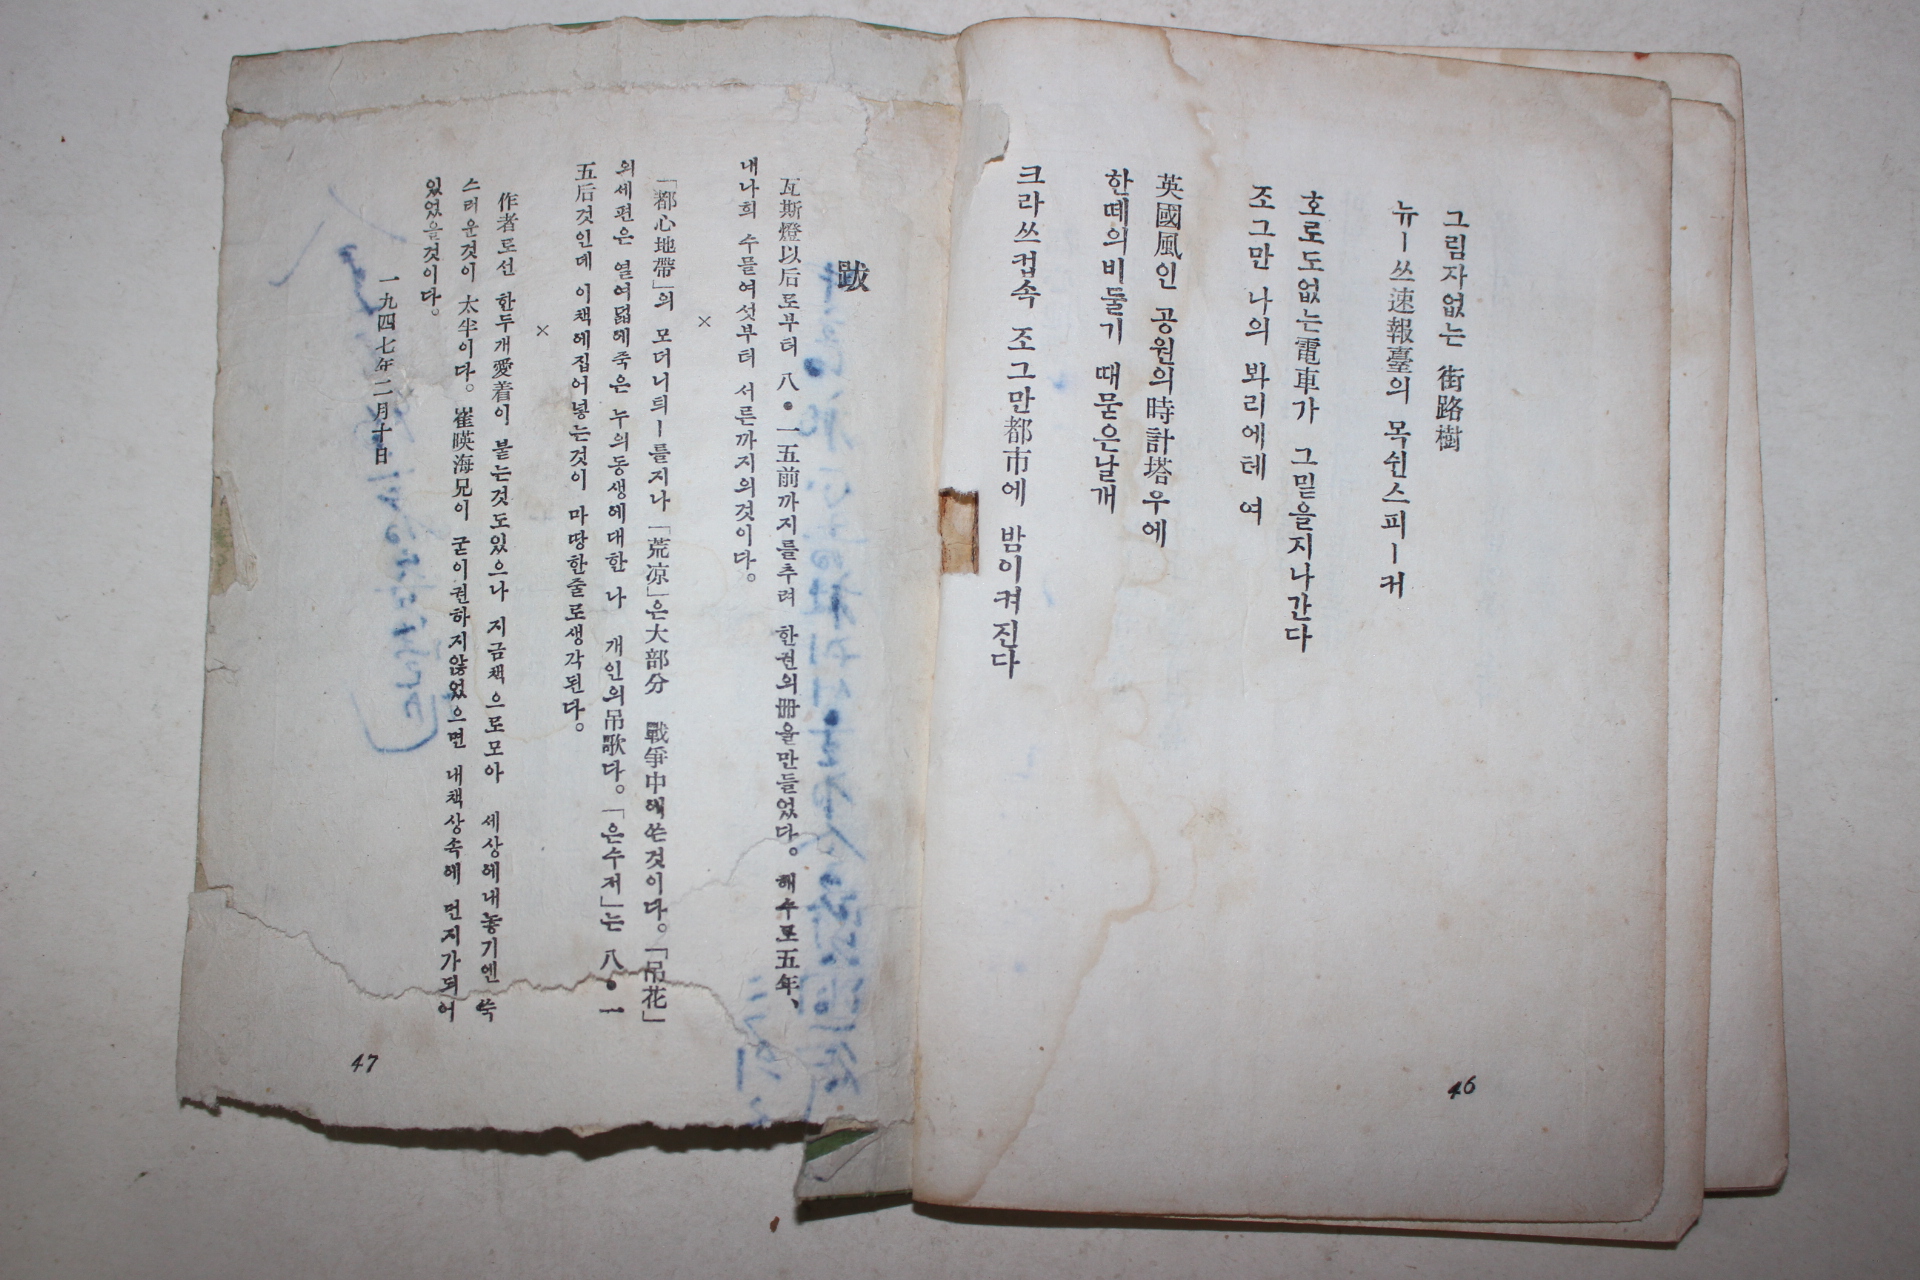 그림자없는 街路樹
뉴ー쓰速報臺의 목쉰스피ー커
호로도없는電車가 그밑을지나간다
조그만 나의 봐리에테 여
英國風인 공원의時計塔우에
한떼의비둘기 때묻은날개
크라쓰컵속 조그만都市에 밤이켜진다
46
跋
瓦斯燈以后로부터 八●一五前까지를추려 한권의冊을만들었다。해수로五年、
내나희 수믈여섯부터 서른까지의것이다。
×
「都心地帶」의 모더니틔ー를지나「荒凉」은大部分 戰爭中에쓴것이다。「吊花」
의세편은 열여덟에죽은 누의동생에대한 나 개인의吊歌다。「은수저」는 八●一
五后것인데 이책에집어넣는것이 마땅한줄로생각된다。
×
作者로선 한두개愛着이 붙는것도있으나 지금책으로모아 세상에내놓기엔 쑥
스러운것이 太半이다。崔暎海兄이 굳이권하지않었으면 내책상속에 먼지가되어
있었을것이다。
一九四七年二月十日
47